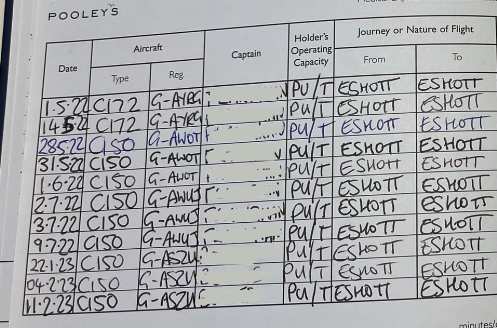 POOLEY'S
Date Aircraft Captain Holder's Operating Capacity Journey or Nature of Flight
Type Reg. From To
1.5.22 C172 G-AYRG PU/T ESHOTT ESHOTT
14.5.22 C172 G-AYRG PU/T ESHOTT ESHOTT
28.5.22 C150 G-AWOT PU/T ESHOTT ESHOTT
31.5.22 C150 G-AWOT PU/T ESHOTT ESHOTT
1.6.22 C150 G-AWOT PU/T ESHOTT ESHOTT
2.7.22 C150 G-AWUJ PU/T ESHOTT ESHOTT
3.7.22 C150 G-AWUJ PU/T ESHOTT ESHOTT
9.7.22 C150 G-AWUJ PU/T ESHOTT ESHOTT
22.1.23 C150 G-ASZU PU/T ESHOTT ESHOTT
04.2.23 C150 G-ASZU PU/T ESHOTT ESHOTT
11.2.23 C150 G-ASZU PU/T ESHOTT ESHOTT